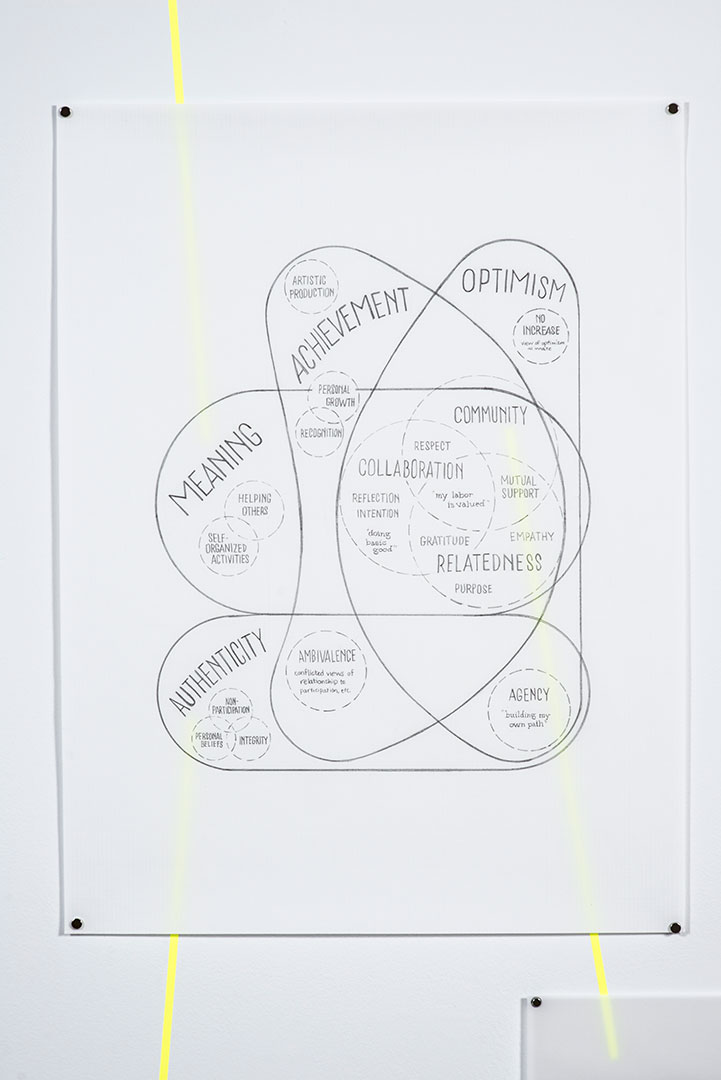 OPTIMISM
NO
INCREASE
view of optimism
as innate
ARTISTIC
PRODUCTION
ACHIEVEMENT
PERSONAL
GROWTH
RECOGNITION
MEANING
HELPING
OTHERS
SELF-
ORGANIZED
ACTIVITIES
COMMUNITY
RESPECT
COLLABORATION
REFLECTION
INTENTION
"my labor
is valued"
MUTUAL
SUPPORT
"doing
basic
good"
GRATITUDE
EMPATHY
RELATEDNESS
PURPOSE
AUTHENTICITY
NON-
PARTICIPATION
PERSONAL
BELIEFS
INTEGRITY
AMBIVALENCE
conflicted views of
relationship to
participation, etc.
AGENCY
"building my
own path"